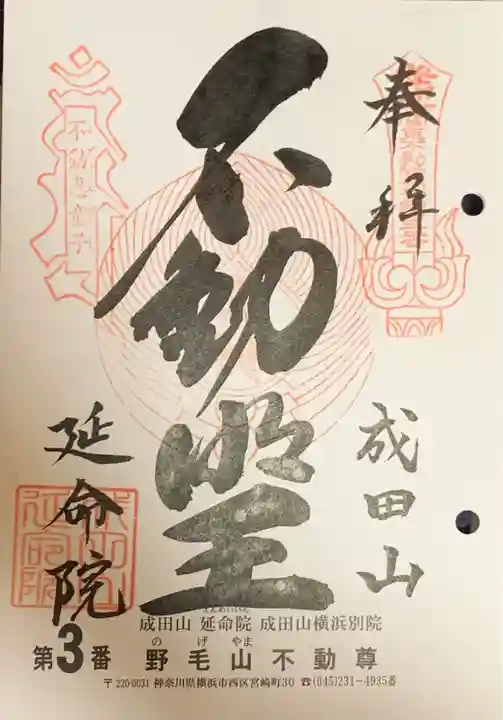 奉拝
成田山
不動明王
延命院
えんめいいん
成田山 延命院 成田山横浜別院
のげやま
第3番 野毛山不動尊
〒220-0031 神奈川県横浜市西区宮崎町30 ☎(045)231-4935番